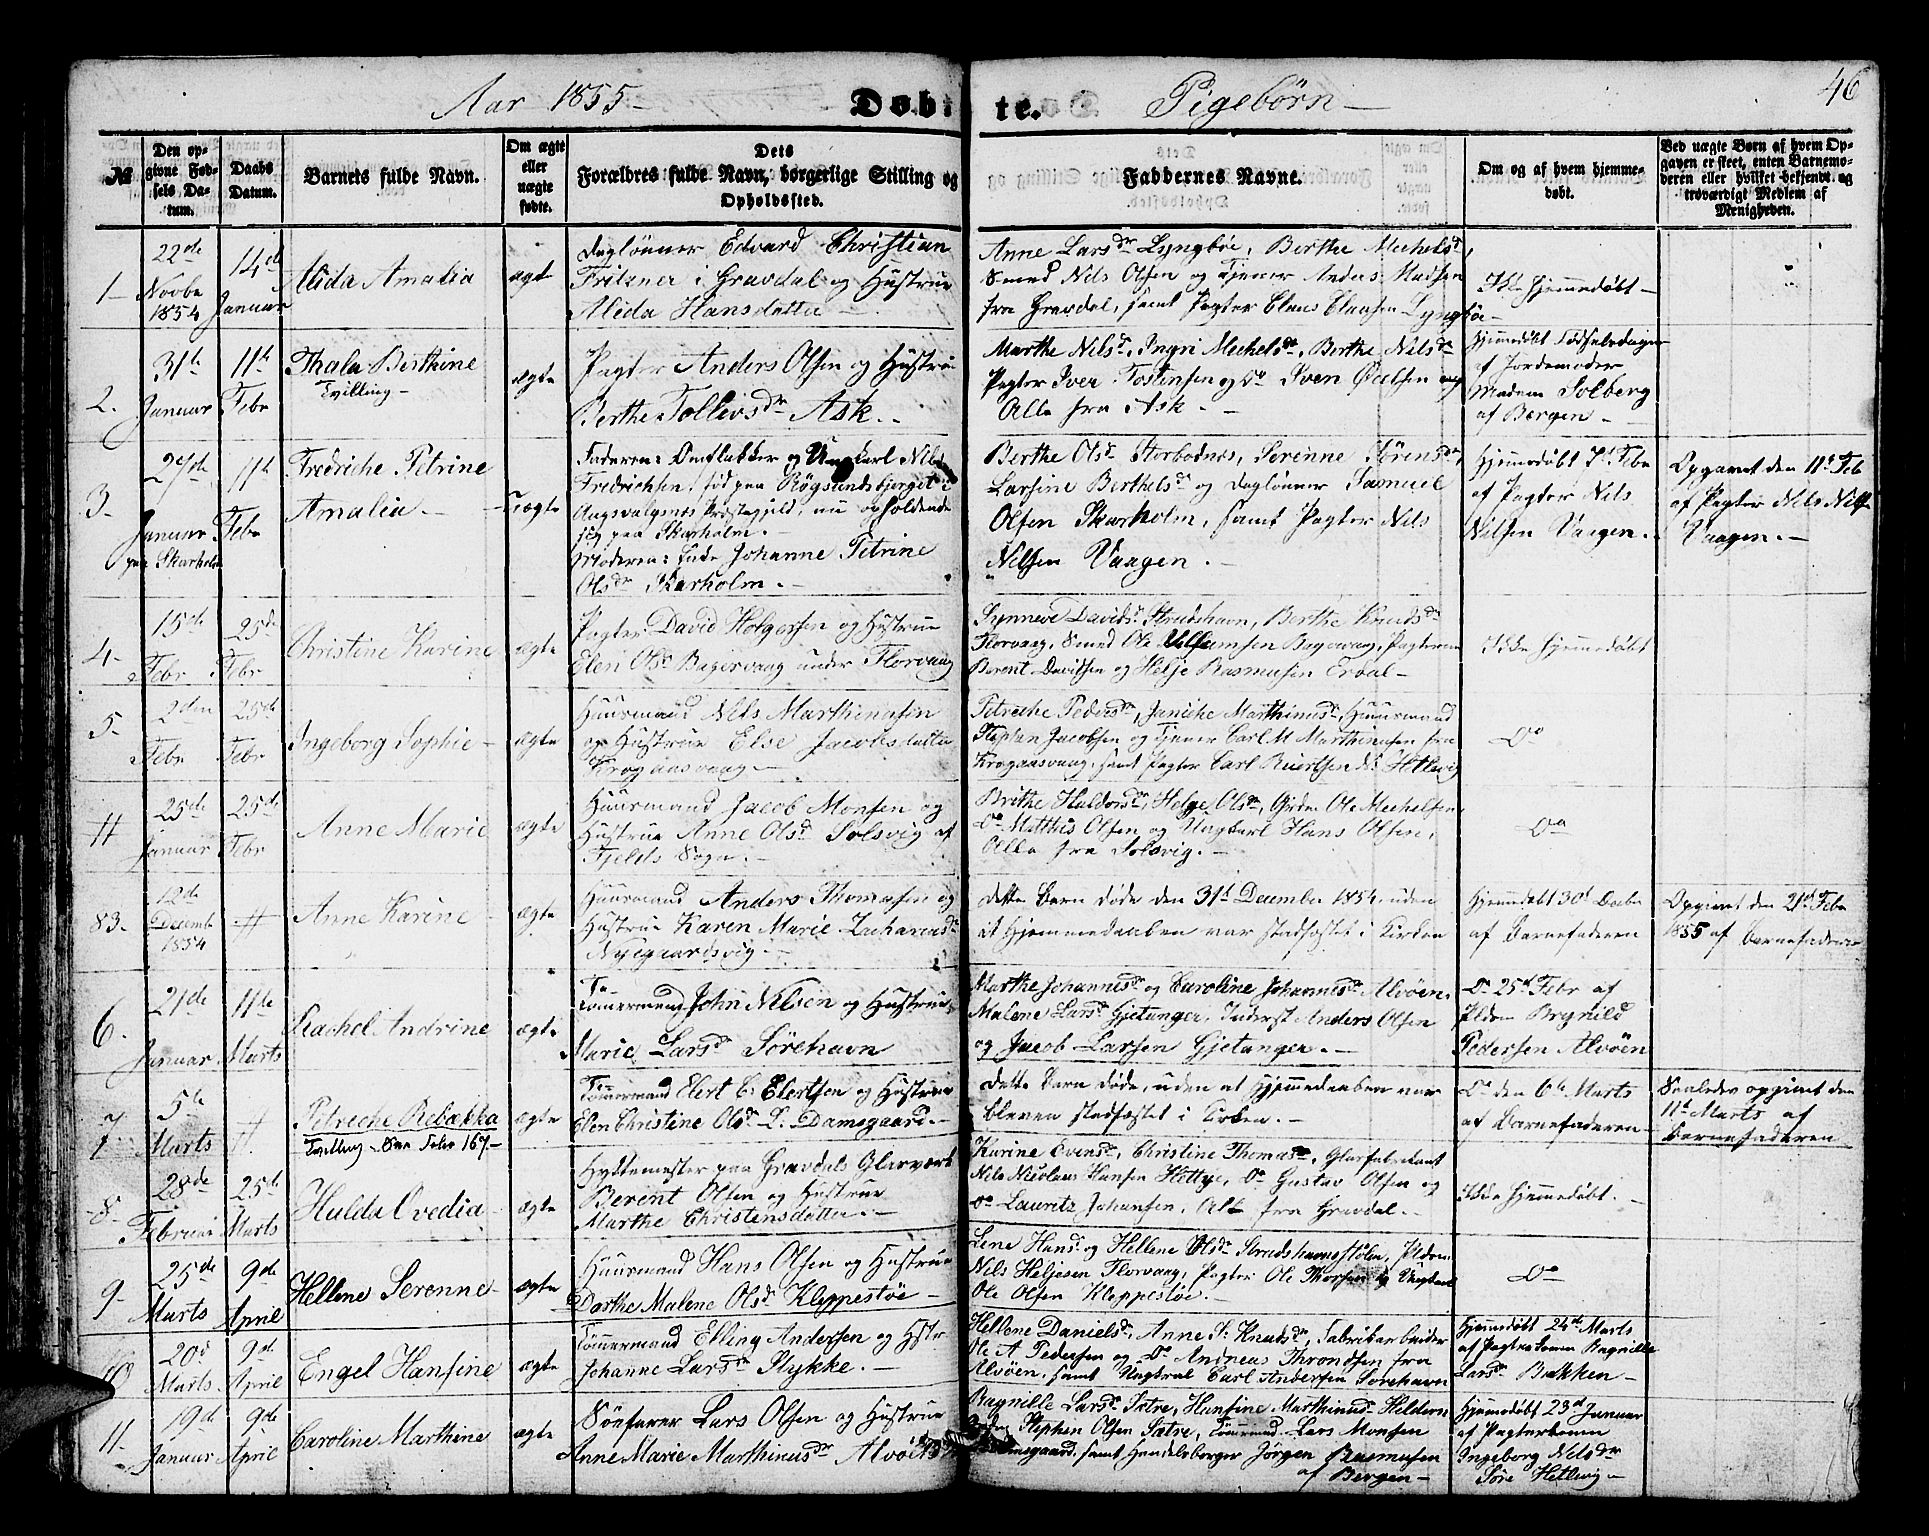 Aar 1855 — Døbte. Pigebørn — 46
№
Den opgivne Fødsels Datum.
Daabs Datum.
Barnets fulde Navn.
Om ægte eller uægte fødte.
Forældres fulde Navn, borgerlige Stilling og Opholdssted.
Faddernes Navne.
Om og af hvem hjemmedøbt.
Ved uægte Børn af hvem Opgaven er skeet, enten Barnemoderen eller hvilket bekjendt og troværdigt Medlem af Menigheden.
1 —
22de
Novbr
1854
14de
Januar
Alida Amalia
ægte
Daglønner Edvard Christian
Fritzner i Gravdal og Hustrue
Alida Hansdatter —
Anne Larsdr Lyngbøe, Berthe Michelsdr
Smed Nils Olsen og Tjener Anders Madsen
fra Gravdal, samt Pagter Claus Clausen Lyngbøe —
Ikke Hjemmedøbt —
2.
31te
Januar
11te
Febr
Thala Berthine
Tvilling —
ægte
Pagter Anders Olsen og Hustrue
Berthe Tollevsdr Ask. —
Marthe Nilsdr, Ingri Michelsdr, Berthe Nilsdr
Pagter Iver Tostensen og Do Sven
Alle fra Ask. —
Hjemmedøbt Fødselsdagen
af Jordemoder
Madam Solberg
af Bergen —
3.
27de
Januar
paa Skarholm
11te
Febr
Fredriche Petrine
Amalia. —
Uægte
Faderen: Omflakker og Ungkarl Nils
Fredrichsen, fød paa Røgsundsbjerget i
Augsvalgsnæs Præstegjeld, nu opholdende
sig paa Skarholm. —
Moderen: Enke Johanne Petrine
Olsdr Skarholm. —
Berthe Olsdr Storbodnes, Serenne Sørensdr,
Larsine Berthelsdr og Daglønner Samuel
Olsen Skarholm, samt Pagter Nils
Nilsen Vaagen. —
Hjemmedøbt 7de Febr
af Pagter Nils
Nilsen Vaagen. —
Opgivet den 11te Feb
af Pagter Nils Nilsen
Vaagen. —
4 —
15de
Febr
25de
Febr
Christine Karine
ægte
Pagter David Holgersen og Hustrue
Elen Olsdr Bagervaag under Florvaag
Synneve Davidsdr Strudshavn, Berthe Knudsdr
Florvaag, Smed Ole Villumsen Bagervaag, Pagterne
Berent Davidsen og Helje Rasmusen Erdal —
Ikke Hjemmedøbt
5 —
2den
Febr
25de
Febr
Ingeborg Sophie —
ægte
Huusmand Nils Marthinusen
og Hustrue Else Jacobsdatter
Krogaasvaag —
Petriche Pedersdr, Janiche Marthinusdr, Huusmand
Stephan Jacobsen og Tjener Carl M Marthinusen fra
Krogaasvaag, samt Pagter Carl Ruertsen N. Hetlevig
Do
25de
Januar
25de
Febr
Anne Marie
ægte
Huusmand Jacob Monsen og
Hustrue Anne Olsdr Solsvig af
Fjelds Sogn. —
Brithe Haldorsdr, Helge Olsdr, Grdm Ole Michelsen
Do Matthis Olsen og Ungkarl Hans Olsen,
Alle fra Solsvig. —
Do
83.
12de
Decembr
1854
Anne Karine
ægte
Huusmand Anders Thomasen og
Hustrue Karen Marie Zachariasdr
Nygaardsvig —
Dette Barn døde den 31te December 1854, uden
at Hjemmedaaben var stadfæstet i Kirken
Hjemmedøbt 30te Decbr
af Barnefaderen
Opgivet den 21de Febr
1855 af Barnefaderen
6.
21de
Januar
11te
Marts
Rachel Andrine
ægte
Tømmermand John Nilsen og Hustrue
Marie Larsdr Sørehavn
Marthe Johannesdr og Caroline Johannesdr Alvøen,
Malene Larsdr Gjetanger, Inderst Anders Olsen
og Jacob Larsen Gjetanger. —
Do 25de Febr af
Pldm Brynild
Pedersen Alvøen
7
5te
Marts
Petriche Rebækka
Tvilling — See Følio 167. —
ægte
Tømmermand Elert E. Elertsen og Hustrue
Elen Christine Olsdr L. Damsgaard. —
Dette Barn døde, uden at Hjemmedaaben var
bleven stadfæstet i Kirken. —
Do den 6te Marts
af Barnefaderen —
Saaledes opgivet den
11te Marts af
Barnefaderen
8 —
28de
Februar
25de
Marts
Hulda Ovedia —
ægte
Hyttemester paa Gravdals Glasværk
Berent Olsen og Hustrue
Marthe Christensdatter. —
Karine Evensdr, Christine Thomasdr, Glasfabrikant
Nils Nicolaus Hansen Hettye, Do Gustav Olsen og
Do Lauritz Johansen, Alle fra Gravdal. —
Ikke Hjemmedøbt. —
9 —
25de
Marts
9de
April
Hellene Serenne —
ægte
Huusmand Hans Olsen og Hustrue
Dorthe Malene Olsdr Kleppestøe —
Lene Hansdr og Hellene Olsdr Strudshavnstølen, Pldm
Nils Heljesen Florvaag, Pagter Ole Thorsen og Ungkarl
Ole Olsen Kleppestøe. —
Do
10
20de
Marts
9de
April
Engel Hansine
ægte
Tømmermand Elling Andersen og Hstr
Johanne Larsdr Stykke. —
Hellene Danielsdr, Anne S. Knudsdr, Fabrikarbeider
Ole A Pedersen og Do Andreas Throndsen fra
Alvøen, samt Ungkral Carl Andersen Sørehavn
Hjemmedøbt 24de Marts
af Pagterkonen Ragnille
Larsdr Bakken —
11 —
19de
Januar
9de
April
Caroline Marthine
ægte
Søefarer Lars Olsen og Hustrue
Anne Marie Marthinusdr
Ragnille Larsdr Sætre, Hansine Marthinusdr Heldern
Stephen Olsen Sætre, Tømmermd Lars Monsen
Damsgaard, samt Handelsborger Jørgen Rasmusen
af Bergen —
Hjemmedøbt 23de Januar
af Pagterkonen
Ingeborg Nilsdr
Søre Hetlevig —